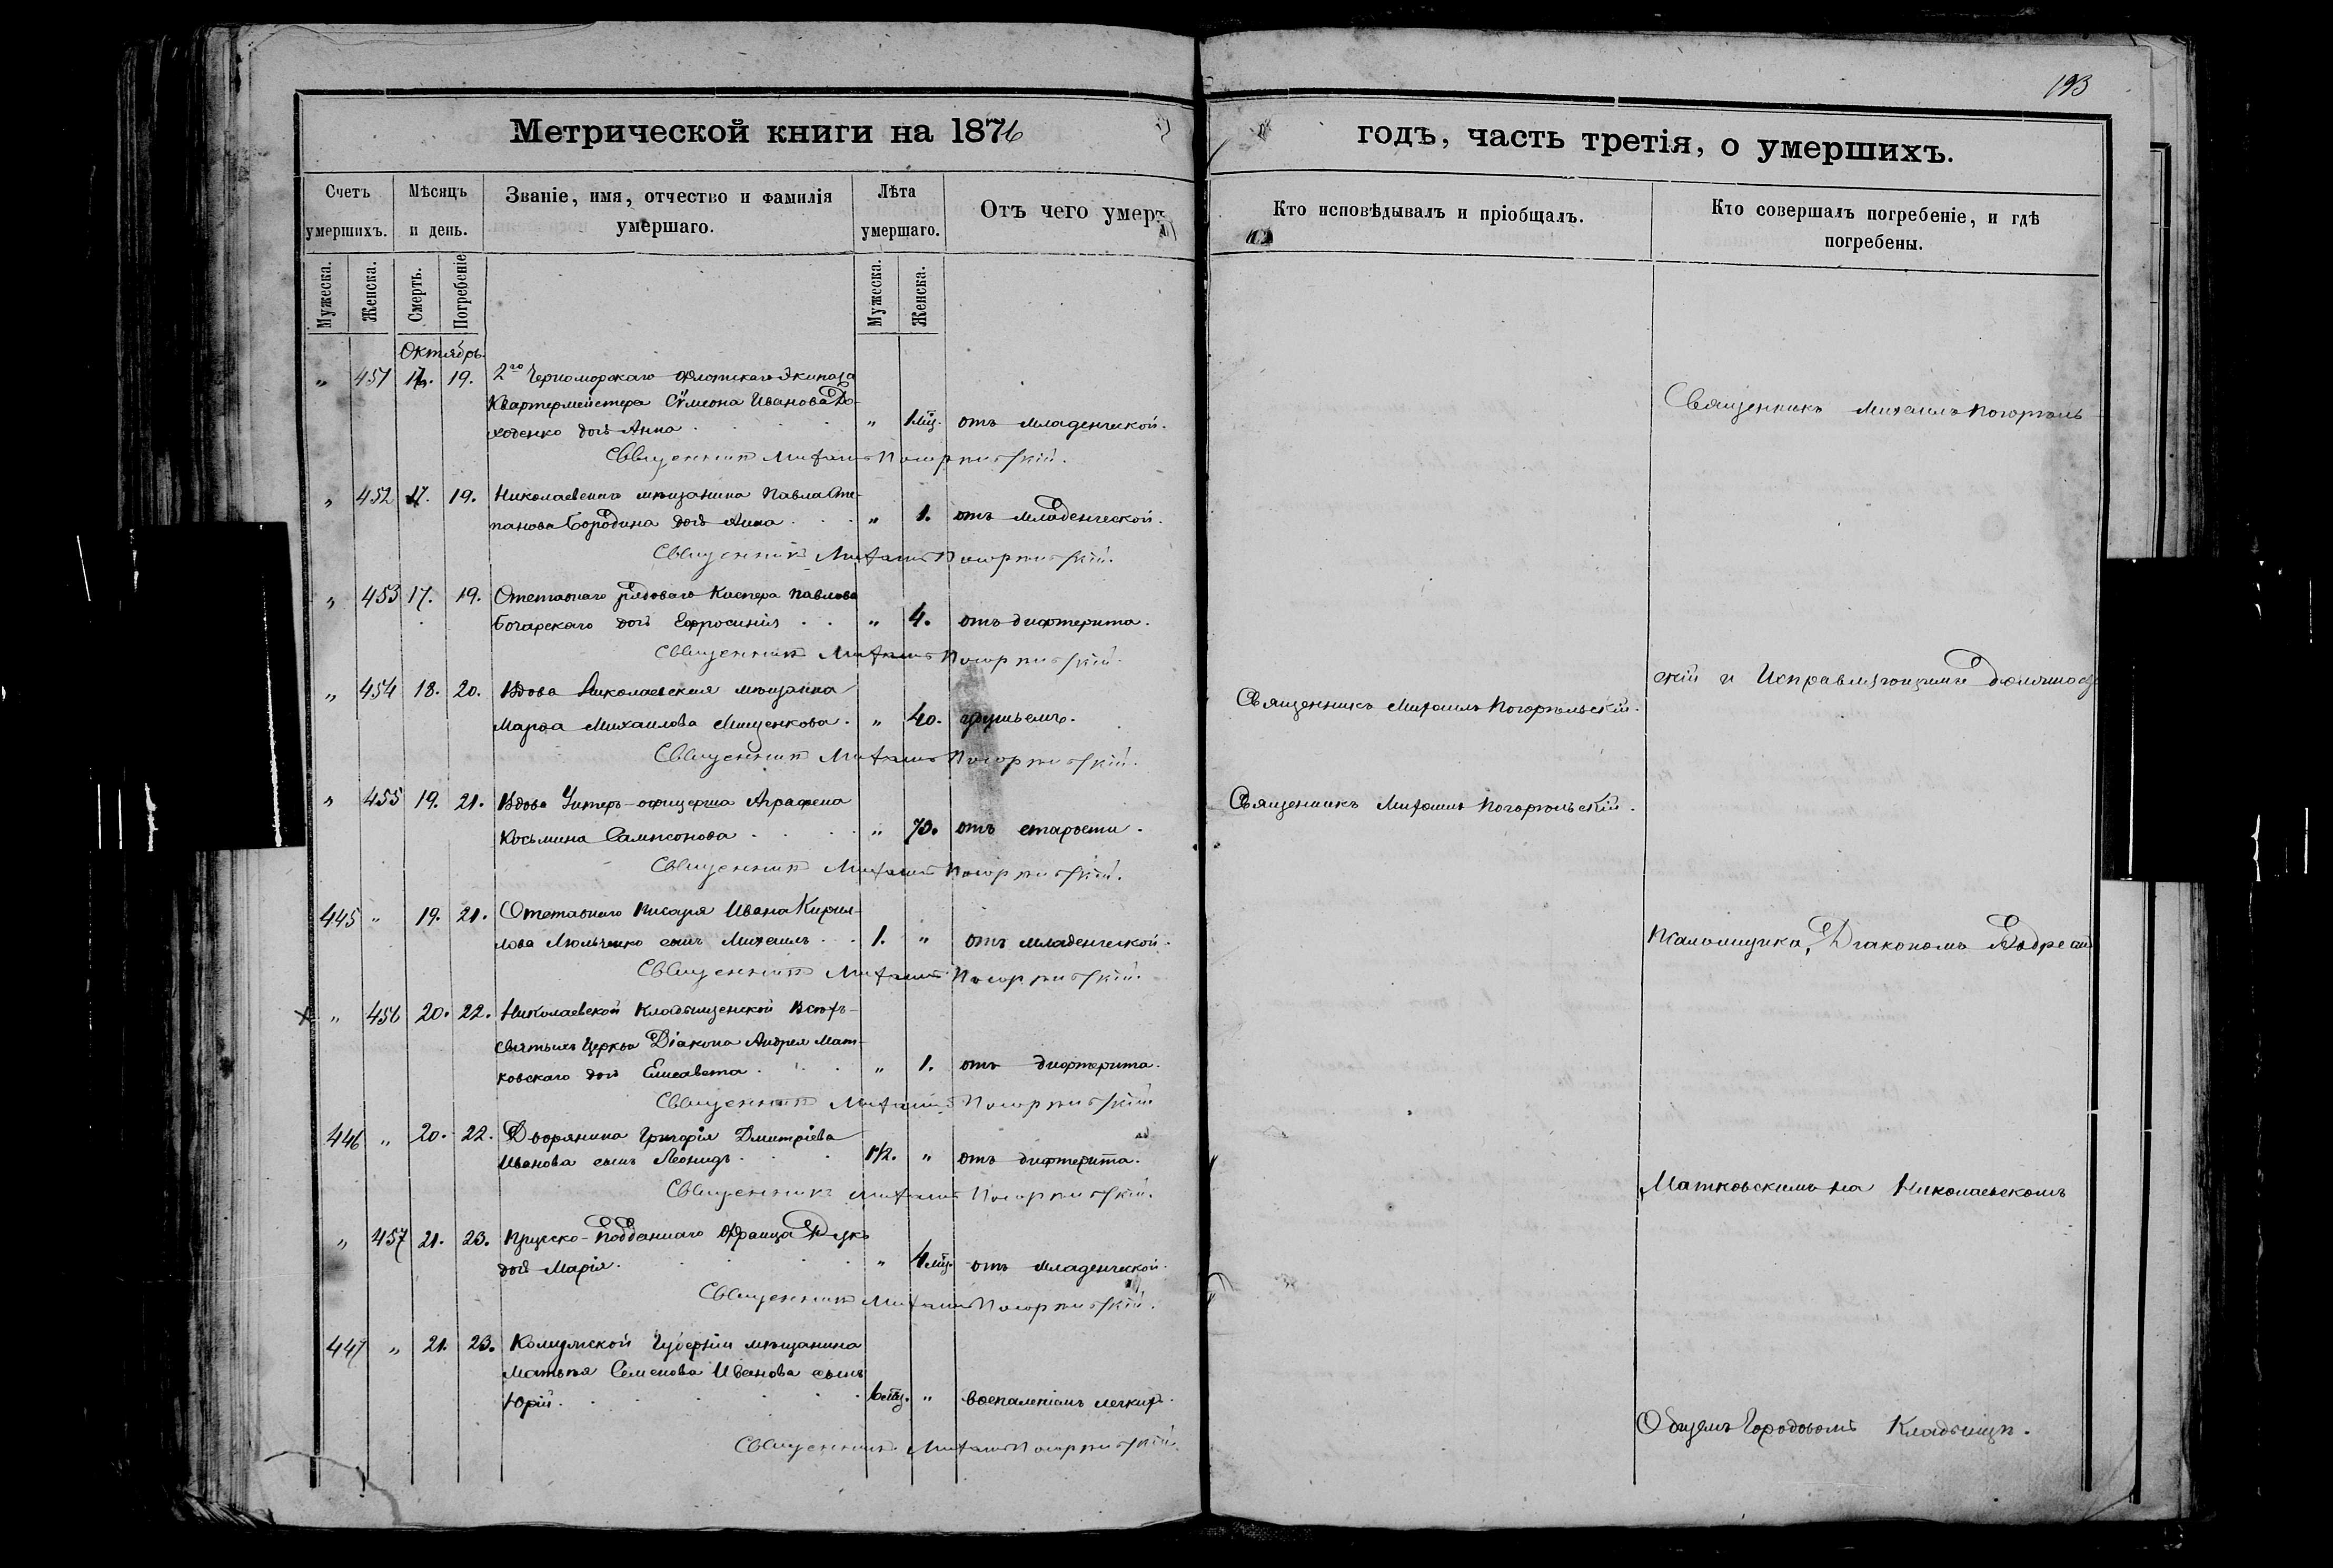 193
Метрической книги на 1876
годъ, часть третія, о умершихъ.
Счетъ умершихъ.
Мѣсяцъ и день.
Званіе, имя, отчество и фамилія умершаго.
Лѣта умершаго.
Отъ чего умеръ
Кто исповѣдывалъ и пріобщалъ.
Кто совершалъ погребеніе, и гдѣ погребены.
Мужеска.
Женска.
Смерть.
Погребеніе
Мужеска.
Женска.
Октябрь.
„ 451 17. 19. 2го Черноморскаго Флотскаго Экипажа
Квартермейстера Сѵмеона Иванова До-
ходенко дочь Анна . . . „ 1 мц. отъ младенческой.
Священникъ Михаилъ Погорѣльскій.
„ 452 17. 19. Николаевскаго мѣщанина Павла Сте-
панова Бородина дочь Анна . . . „ 1. отъ младенческой.
Священникъ Михаилъ Погорѣльскій.
„ 453 17. 19. Отставнаго рядоваго Каспера Павлова
Бочарскаго дочь Ефросинія . . „ 4. отъ дифтерита.
Священникъ Михаилъ Погорѣльскій.
„ 454 18. 20. Вдова Николаевская мѣщанка
Марфа Михаилова Мищенкова . „ 40. удушьемъ.
Священникъ Михаилъ Погорѣльскій.
„ 455 19. 21. Вдова Унтеръ-офицерша Аграфена
Косьмина Сампсонова . . . . „ 70. отъ старости.
Священникъ Михаилъ Погорѣльскій.
445 „ 19. 21. Отставнаго писаря Ивана Кирил-
лова Люльченко сынъ Михаилъ . . 1. „ отъ младенческой.
Священникъ Михаилъ Погорѣльскій.
„ 456 20. 22. Николаевской Кладбищенской Всѣхъ-
святыхъ Церкви Діакона Андрея Мат-
ковскаго дочь Елисавета . . . „ 1. отъ дифтерита.
Священникъ Михаилъ Погорѣльскій
446 „ 20. 22. Дворянина Григорія Дмитріева
Иванова сынъ Леонидъ . . . 1½. „ отъ дифтерита.
Священникъ Михаилъ Погорѣльскій.
„ 457 21. 23. Прусско-Подданнаго Франца
дочь Марія . . . . „ 4 мц. отъ младенческой.
Священникъ Михаилъ Погорѣльскій.
447 „ 21. 23. Губерніи мѣщанина
Матвѣя Семенова Иванова сынъ
Юрій . . . . . . 6 мц. „ воспаленіемъ легкихъ.
Священникъ Михаилъ Погорѣльскій.
Священникъ Михаилъ Погорѣльскій.
Священникъ Михаилъ Погорѣльскій.
Священникъ Михаилъ Погорѣль-
скій и Исправляющимъ должность
Псаломщика, Діакономъ Андреемъ
Матковскимъ на Николаевскомъ
Общемъ Городовомъ Кладбищѣ.